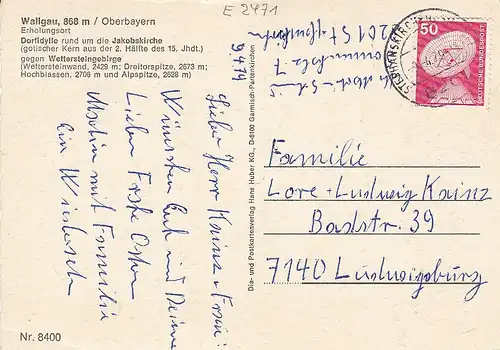 Wallgau, 868 m / Oberbayern
Erholungsort
Dorfidylle rund um die Jakobskirche
(gotischer Kern aus der 2. Hälfte des 15. Jhdt.)
gegen Wettersteingebirge
(Wettersteinwand, 2429 m; Dreitorspitze, 2673 m;
Hochblassen, 2706 m und Alpspitze, 2628 m)
E 2471
9.4.79
Lieber Herr Kainz + Frau!
Wünschen Euch und Deiner
Lieben Frohe Ostern
Martin mit Familie
Ein
Nr. 8400
Dia- und Postkartenverlag Hans Huber KG., D-8100 Garmisch-Partenkirchen
8201 St
7
50
DEUTSCHE BUNDESPOST
Familie
Lore - Ludwig Kainz
Badstr. 39
7140 Ludwigsburg